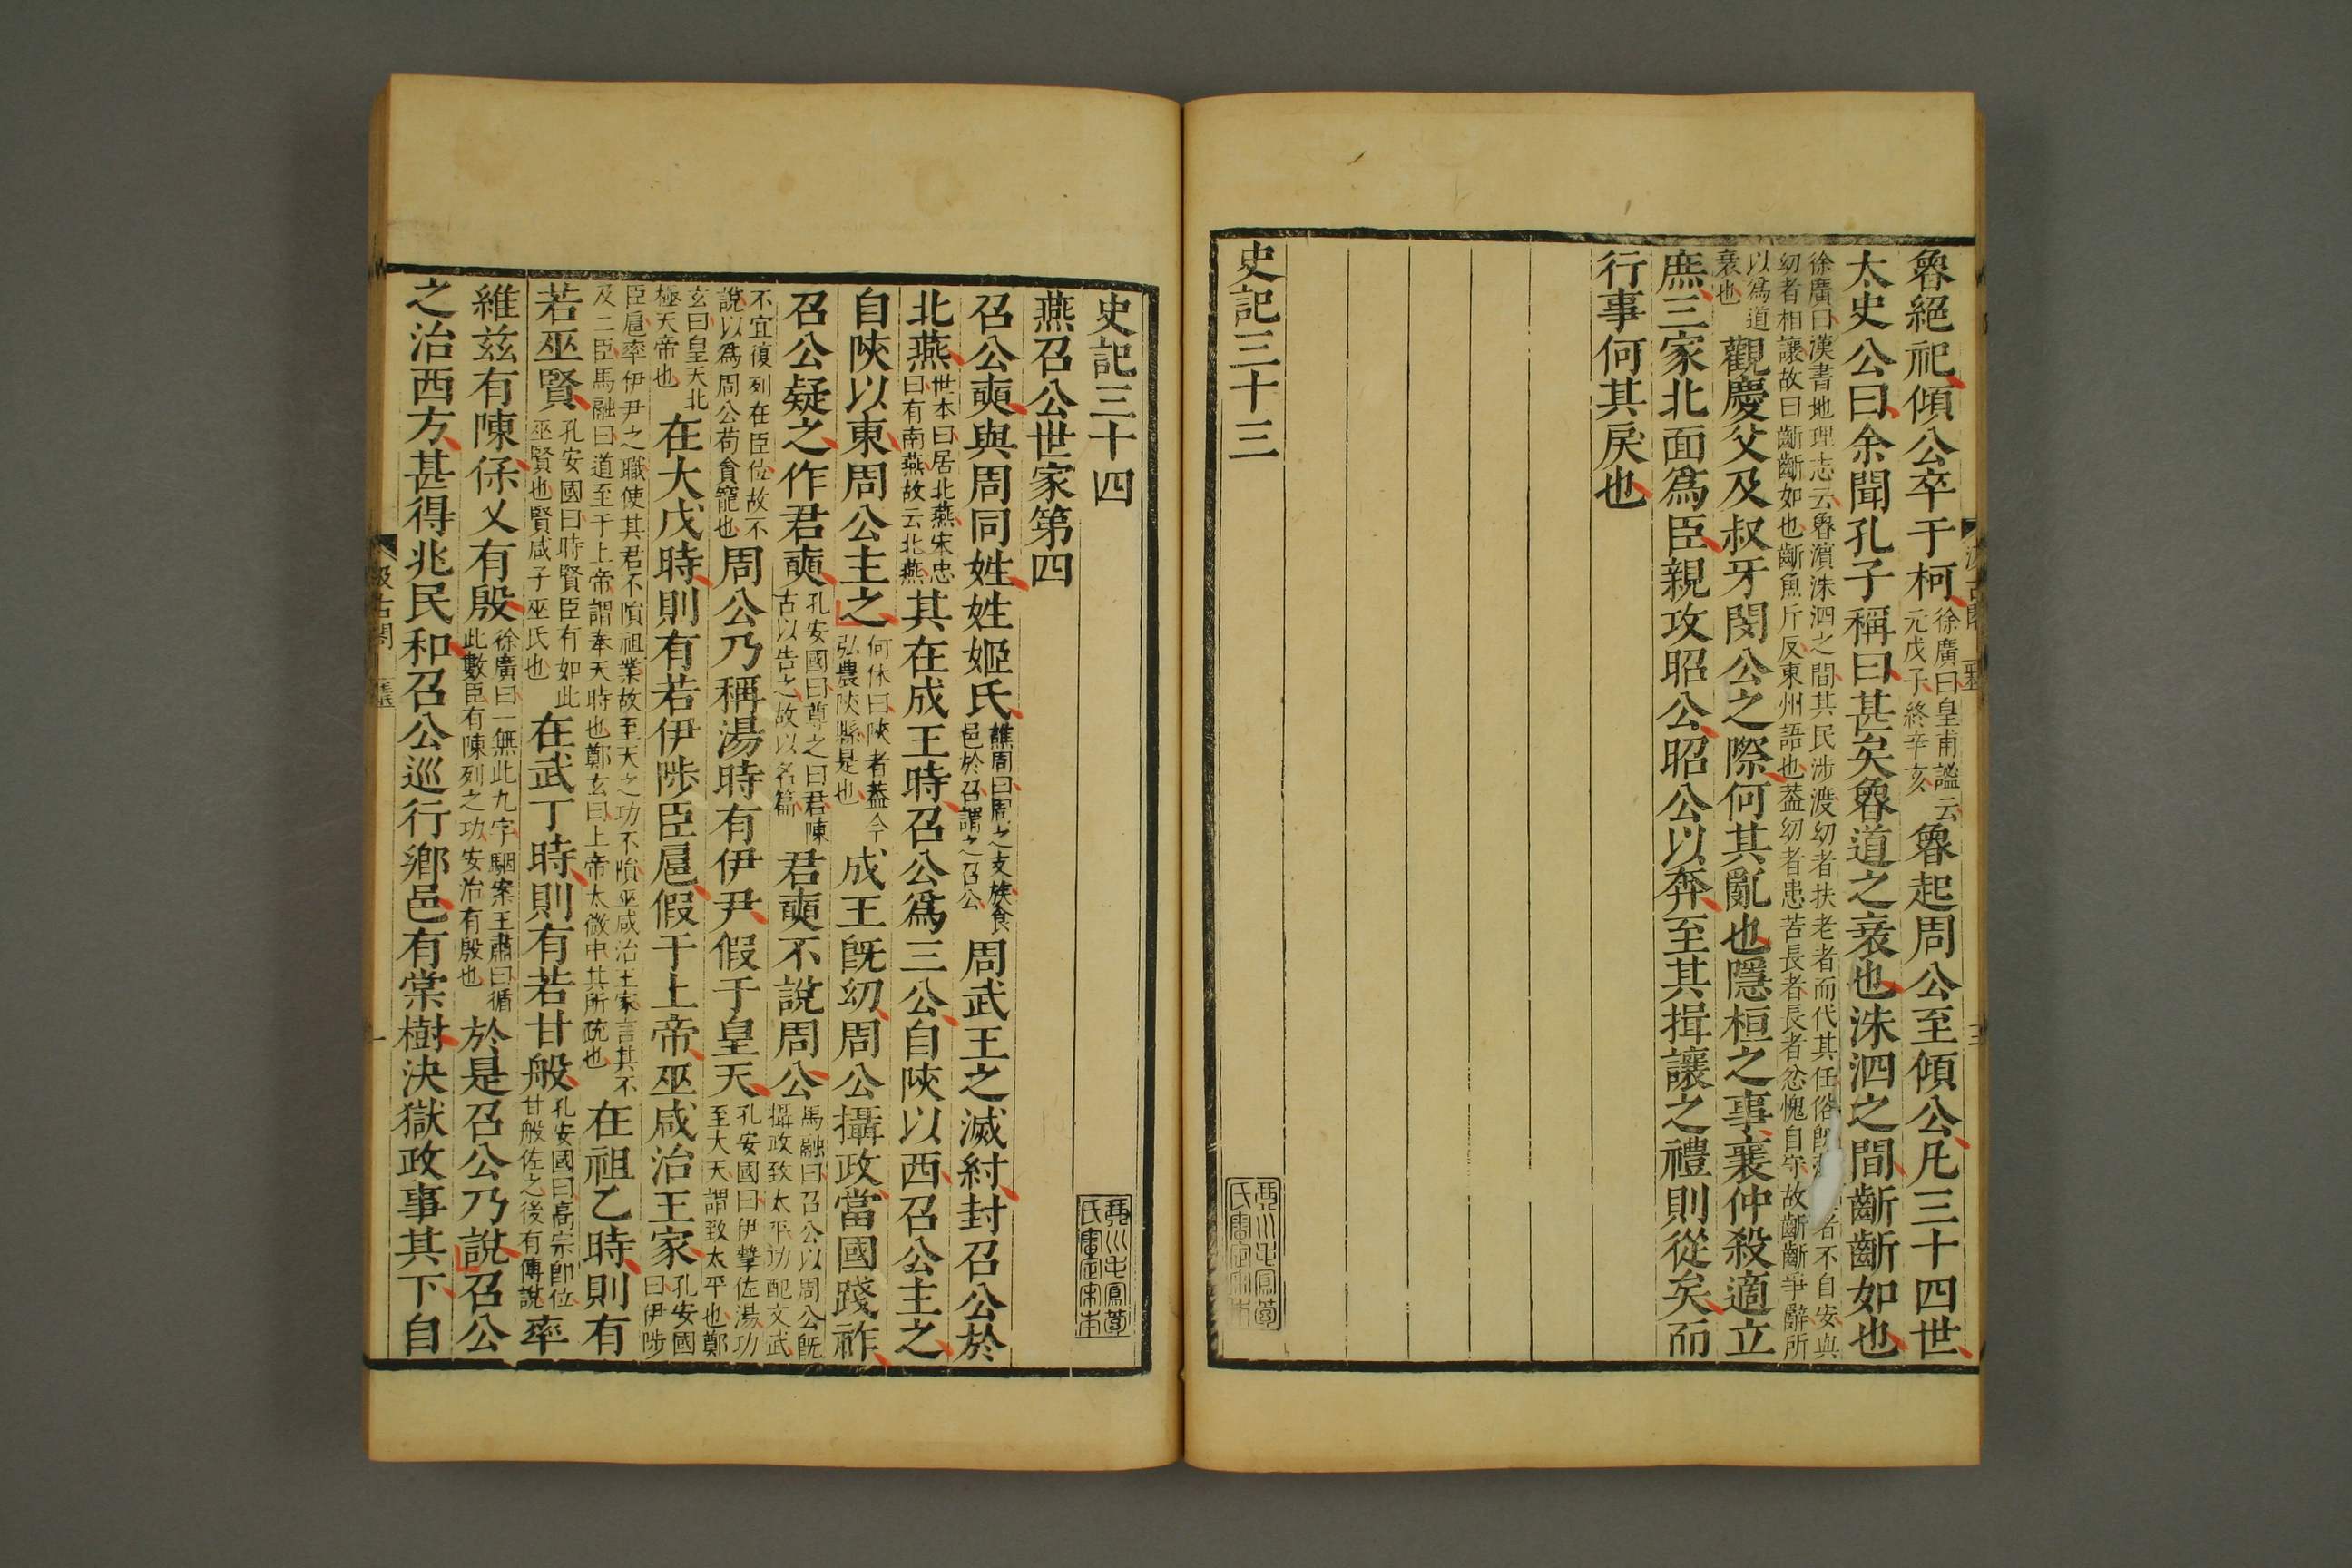 魯絕祀傾公卒于柯徐廣曰皇甫謐云元戊子終辛亥魯起周公至傾公凡三十四世
太史公曰余聞孔子稱曰甚矣魯道之衰也洙泗之間齗齗如也
徐廣曰漢書地理志云魯濱洙泗之間其民涉渡幼者扶老者而代其任俗者不自安與
幼者相讓故曰齗齗如也齗魚斤反東州語也蓋幼者患苦長者長者忿愧自守故齗齗爭辭所
以爲道衰也觀慶父及叔牙閔公之際何其亂也隱桓之事襄仲殺適立
庶三家北面爲臣親攻昭公昭公以奔至其揖讓之禮則從矣而
行事何其戾也
史記三十三
史記三十四
燕召公世家第四
召公奭與周同姓姓姬氏譙周曰周之支族食邑於召謂之召公周武王之滅紂封召公於
北燕世本曰居北燕宋忠曰有南燕故云北燕其在成王時召公爲三公自陝以西召公主之
自陝以東周公主之何休曰陝者蓋今弘農陝縣是也成王旣幼周公攝政當國踐祚
召公疑之作君奭孔安國曰尊之曰君陳古以告之故以名篇君奭不說周公馬融曰召公以周公旣攝政致太平功配文武
不宜復列在臣位故不說以爲周公苟貪寵也周公乃稱湯時有伊尹假于皇天孔安國曰伊摯佐湯功至大天謂致太平也鄭
玄曰皇天北極天帝也在大戊時則有若伊陟臣扈假于上帝巫咸治王家孔安國曰伊陟
臣扈率伊尹之職使其君不隕祖業故至天之功不隕巫咸治王家言其不及二臣馬融曰道至于上帝謂奉天時也鄭玄曰上帝太微中其所統也在祖乙時則有
若巫賢孔安國曰時賢臣有如此巫賢也賢咸子巫氏也在武丁時則有若甘般孔安國曰高宗卽位甘般佐之後有傅說率
維茲有陳保乂有殷徐廣曰一無此九字駰案王肅曰循此數臣有陳列之功安治有殷也於是召公乃說召公
之治西方甚得兆民和召公巡行鄉邑有棠樹決獄政事其下自
汲古閣